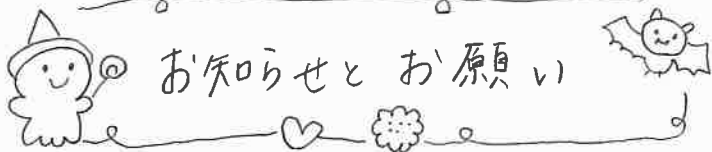 お知らせと お願い